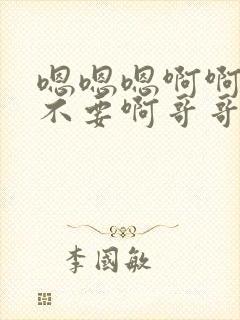 嗯嗯嗯啊啊
不要啊哥哥
李國敏